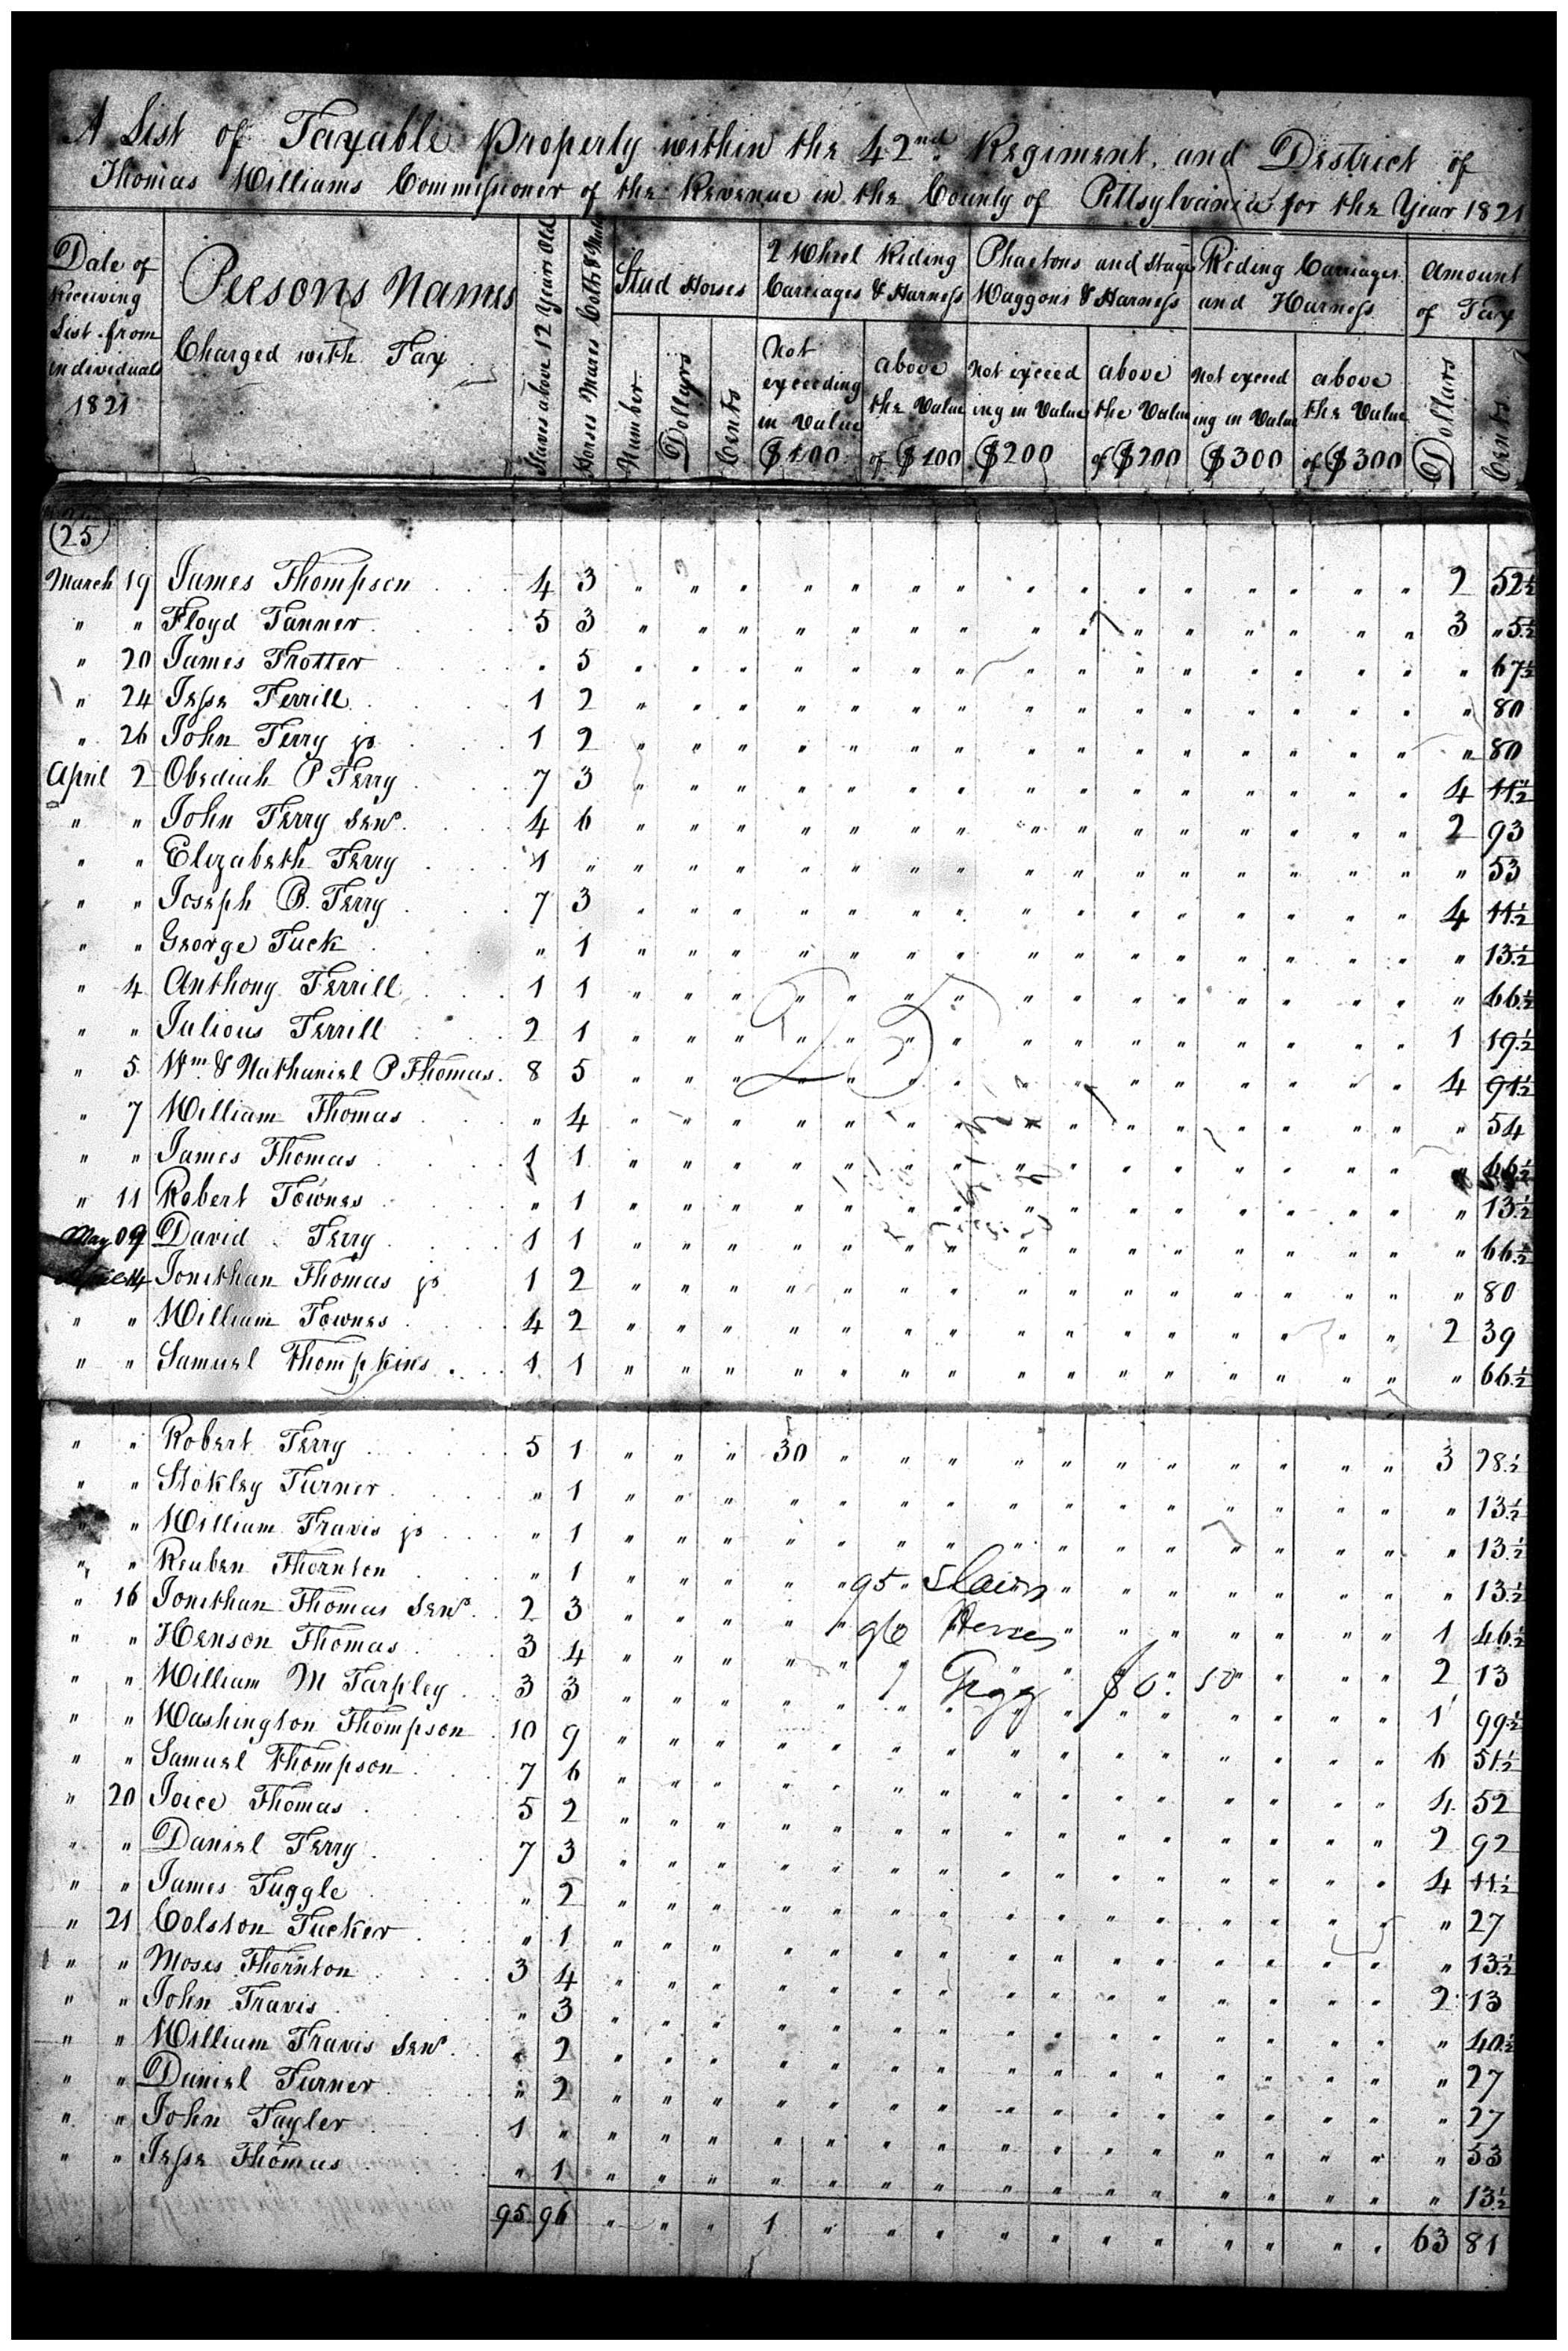 A List of Taxable Property within the 42nd Regiment. and District of
Thomas Williams Commissioner of the Revenue in the County of Pittsylvania for the Year 1821
Date of Receiving List from individuals 1821
Persons Names Charged with Tax
Slaves above 12 Years Old
Horses Mares Colts & Mules
Stud Horses
Number
Dollars
Cents
2 Wheel Riding Carriages & Harness
Not exceeding in Value $100
above the Value of $100
Phaetons and Stage Waggons & Harness
Not exceeding in Value $200
above the Value of $200
Riding Carriages and Harness
Not exceeding in Value $300
above the Value of $300
Amount of Tax
Dollars
Cents
25
March 19 James Thompson 4 3 " " " " " " " " " " " " " " " 2 52½
" " Floyd Tanner 5 3 " " " " " " " " " " " " " " " 3 " 5½
" 20 James Trotter " 5 " " " " " " " " " " " " " " " " 67½
" 24 Jesse Terrill 1 2 " " " " " " " " " " " " " " " " 80
" 26 John Terry jr 1 2 " " " " " " " " " " " " " " " " 80
April 2 Obediah P Terry 7 3 " " " " " " " " " " " " " " " 4 11½
" " John Terry Senr 4 6 " " " " " " " " " " " " " " " 2 93
" " Elizabeth Terry 1 " " " " " " " " " " " " " " " " " 53
" " Joseph B. Terry 7 3 " " " " " " " " " " " " " " " 4 11½
" " George Tuck " 1 " " " " " " " " " " " " " " " " 13½
" 4 Anthony Terrill 1 1 " " " " " " " " " " " " " " " " 66½
" " Julious Terrill 2 1 " " " " " " " " " " " " " " " 1 19½
" 5 Wm & Nathaniel P Thomas 8 5 " " " " " " " " " " " " " " " 4 91½
" 7 William Thomas " 4 " " " " " " " " " " " " " " " " 54
" " James Thomas 1 1 " " " " " " " " " " " " " " " " 66½
" 11 Robert Townes " 1 " " " " " " " " " " " " " " " " 13½
May 09 David Terry 1 1 " " " " " " " " " " " " " " " " 66½
April 14 Jonithan Thomas jr 1 2 " " " " " " " " " " " " " " " " 80
" " William Townes 4 2 " " " " " " " " " " " " " " " 2 39
" " Samuel Thompkins 1 1 " " " " " " " " " " " " " " " " 66½
25
" " Robert Terry 5 1 " " " 30 " " " " " " " " " " " 3 28½
" " Stokley Turner " 1 " " " " " " " " " " " " " " " " 13½
" " William Travis jr " 1 " " " " " " " " " " " " " " " " 13½
" " Reuben Thornton " 1 " " " " " " " " " " " " " " " " 13½
" 16 Jonithan Thomas Senr 2 3 " " " " " " " " " " " " " " " 1 46½
" " Henson Thomas 3 4 " " " " " " " " " " " " " " " 2 13
" " William M Tarpley 3 3 " " " " " " " " " " " " " " " 1 99½
" " Washington Thompson 10 9 " " " " " " " " " " " " " " " 6 51½
" " Samuel Thompson 7 6 " " " " " " " " " " " " " " " 4 52
" 20 Joice Thomas 5 2 " " " " " " " " " " " " " " " 2 92
" " Daniel Terry 7 3 " " " " " " " " " " " " " " " 4 11½
" " James Tuggle " 2 " " " " " " " " " " " " " " " " 27
" 21 Colston Tucker " 1 " " " " " " " " " " " " " " " " 13½
" " Moses Thornton 3 4 " " " " " " " " " " " " " " " 2 13
" " John Travis " 3 " " " " " " " " " " " " " " " " 40½
" " William Travis Senr " 2 " " " " " " " " " " " " " " " " 27
" " Daniel Turner " 2 " " " " " " " " " " " " " " " " 27
" " John Tayler 1 " " " " " " " " " " " " " " " " " 53
" " Jesse Thomas " 1 " " " " " " " " " " " " " " " " 13½
95 Slaives
96 Horses
1 Gigg $6. 50
95 96 " " " 1 " " " " " " " " " " " 63 81